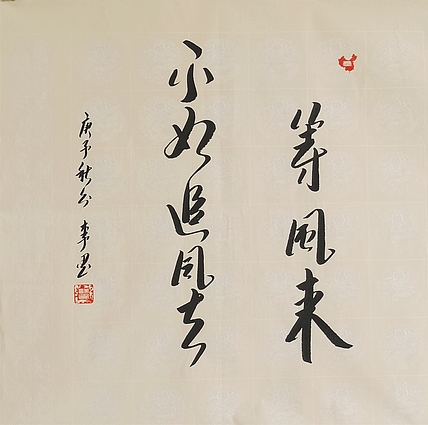 等風来
不如追风去
庚子秋分 李墨